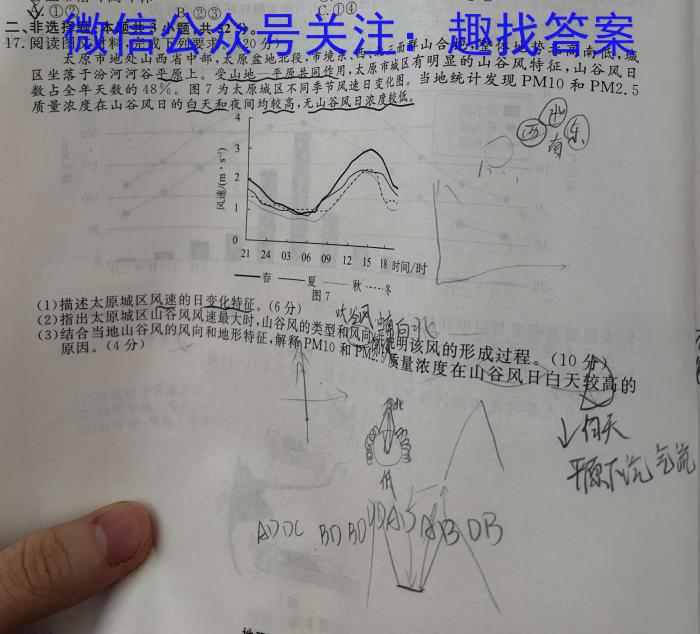 V. ①②　B. ②③　C. ①④
二、非选择题:本题共3小题,共52分。
微信公众号关注：趣找答案
17. 阅读图文材料,完成下列要求。(20分)
太原市地处山西省中部,太原盆地北段,市境东、西、北三面群山合抱,整体地势北高南低,城
区坐落于汾河河谷平原上。受山地—平原共同作用,太原市城区有明显的山谷风特征,山谷风日
数占全年天数的48%。图7为太原城区不同季节风速日变化图。当地统计发现PM10和PM2.5
质量浓度在山谷风日的白天和夜间均较高,无山谷风日浓度较低。
西 北 东
南
风速/(m·s⁻¹)
4
3
2
1
0
21 24 03 06 09 12 15 18 时间/时
春 夏 秋 冬
图7
(1)描述太原城区风速的日变化特征。(6分)
(2)指出太原城区山谷风风速最大时,山谷风的类型和风向,并说明该风的形成过程。(10分)
(3)结合当地山谷风的风向和地形特征,解释PM10和PM2.5质量浓度在山谷风日白天较高的
原因。(4分)
北
低
↓白天
平原下沉气流